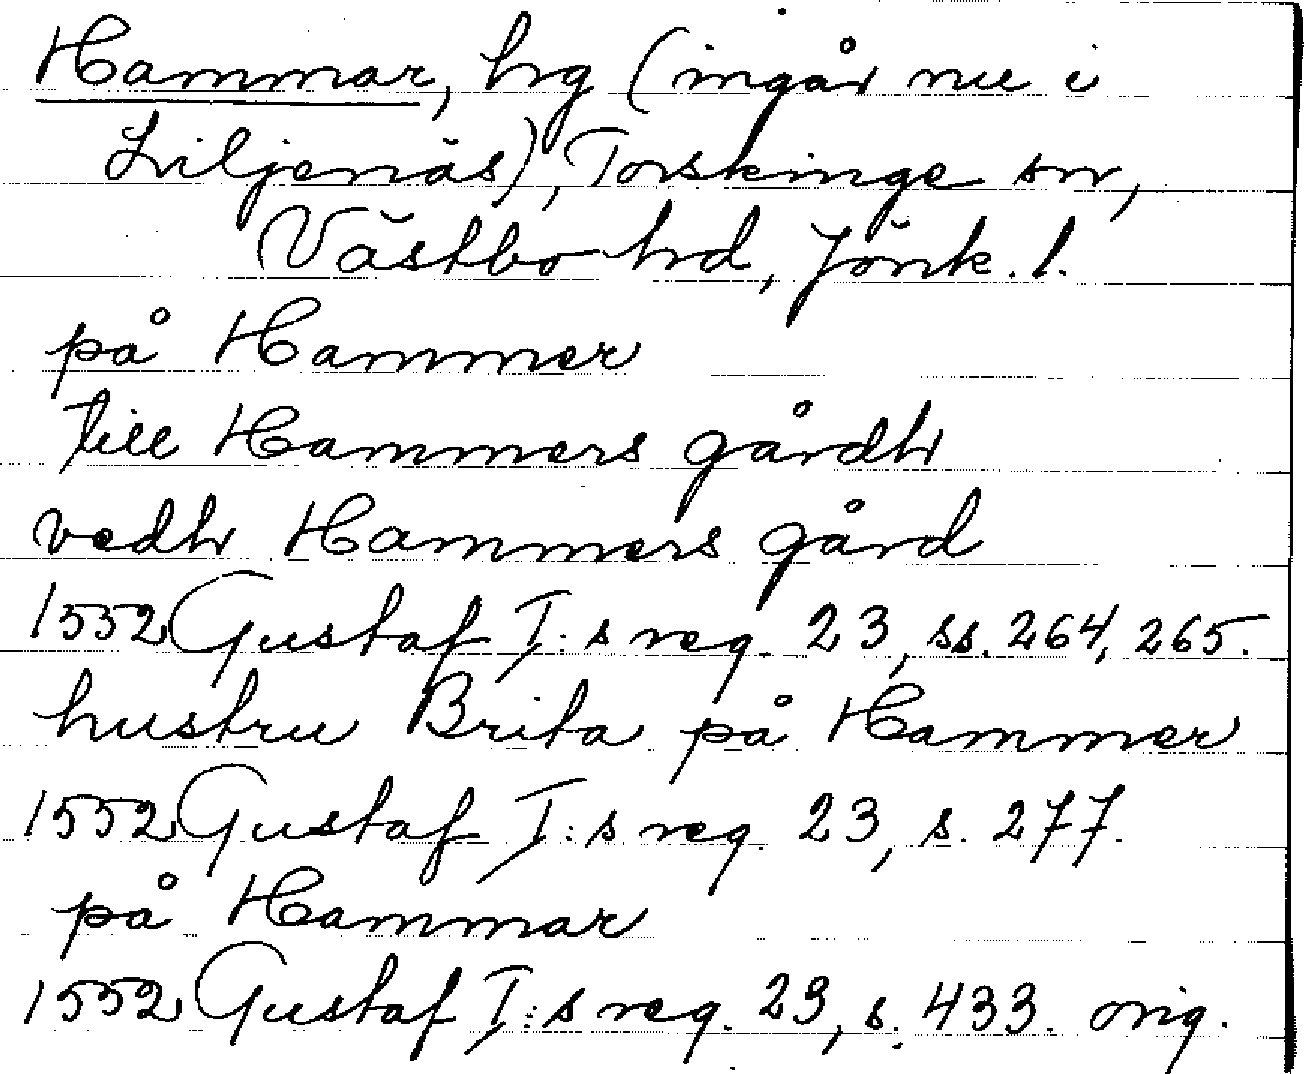 Hammar, hrg (ingår nu i
Liljenäs), Torskinge sn,
Västbo hd, Jönk. l.
på Hammer
till Hammers gårdh
vedh Hammers gård
1552 Gustaf I:s reg. 23, ss. 264, 265.
hustru Brita på Hammer
1552 Gustaf I:s reg. 23, s. 277.
på Hammar
1552 Gustaf I:s reg. 23, s. 433. orig.